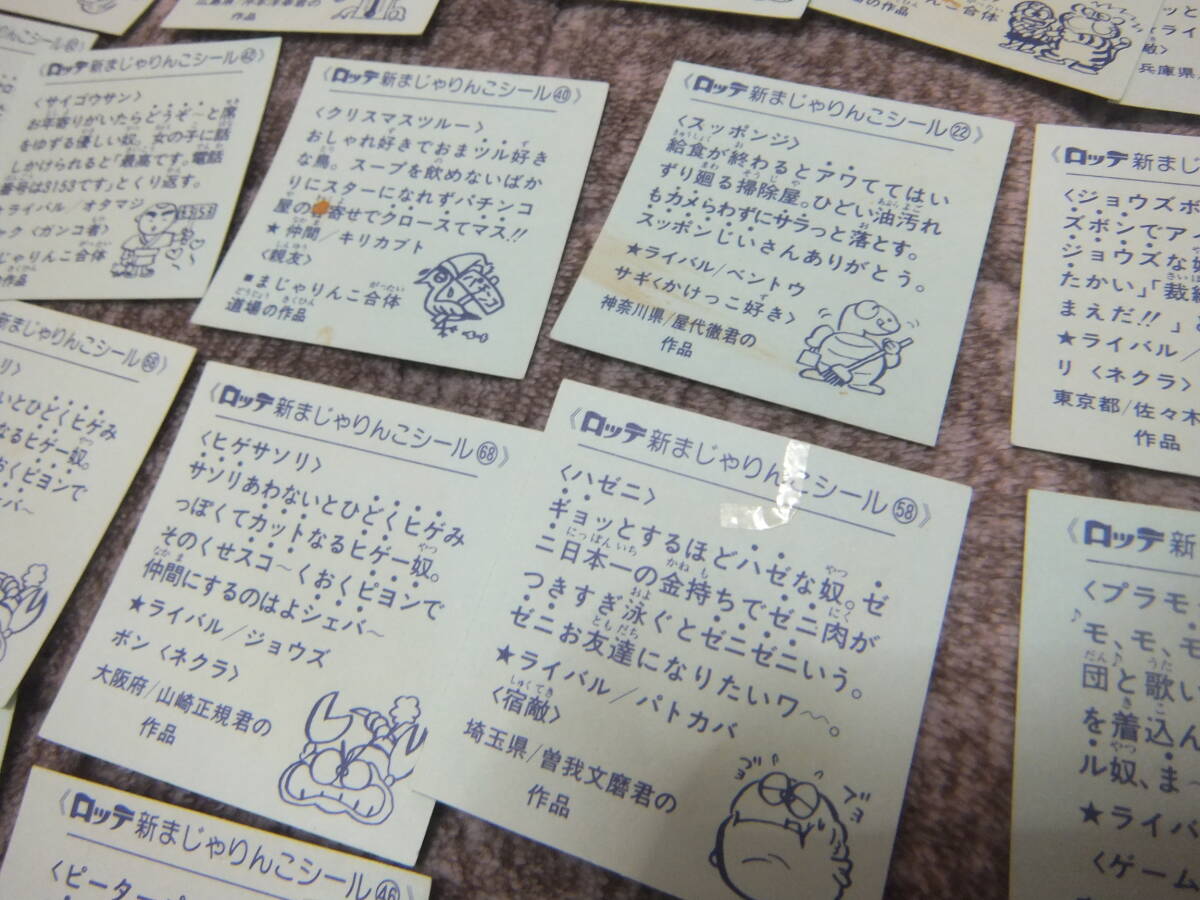 広島県/
作品
の作品
ん〜合体
〈ライ
敵〉
兵庫県
《ロッテ新まじゃりんこシール㊷》
〈サイゴウサン〉
お年寄りがいたらどうぞ〜と席
をゆずる優しい奴。女の子に話
しかけられると「最高です。電話
番号は3153です」とくり返す。
ライバル/オタマジ
ック〈ガンコ者〉
じゃりんこ合体
の作品
《ロッテ新まじゃりんこシール㊵》
〈クリスマスツルー〉
おしゃれ好きでおまツル好き
な鳥。スープを飲めないばか
りにスターになれずパチンコ
屋の
寄せでクロースてマス!!
★仲間/キリカブト
〈親友〉
■まじゃりんこ合体
道場の作品
パチンコ
《ロッテ新まじゃりんこシール㉒》
〈スッポンジ〉
給食が終わるとアワててはい
ずり廻る掃除屋。ひどい油汚れ
もカメらわずにサラっと落とす。
スッポンじいさんありがとう。
★ライバル/ベントウ
サギ〈かけっこ好き〉
神奈川県/屋代徹君の
作品
《ロッテ新まじゃりんこ
〈ジョウズボ
ズボンでアン
ジョウズな奴
たかい」「裁
まえだ!!」
★ライバル/
リ〈ネクラ〉
東京都/佐々木
作品
まじゃりんこシール㊻》
リ〉
いとひどくヒゲみ
なるヒゲー奴。
おくピヨンで
シェバ〜
《ロッテ新まじゃりんこシール㊻》
〈ヒゲサソリ〉
サソリあわないとひどくヒゲみ
っぽくてカットなるヒゲー奴。
そのくせスコ〜くおくピヨンで
仲間にするのはよシェバ〜
★ライバル/ジョウズ
ボン〈ネクラ〉
大阪府/山崎正規君の
作品
《ロッテ新まじゃりんこシール58》
〈ハゼニ〉
ギョッとするほどハゼな奴。ゼ
ニ日本一の金持ちでゼニ肉が
つきすぎ泳ぐとゼニゼニいう。
ゼニお友達になりたいワ〜。
★ライバル/パトカバ
〈宿敵〉
埼玉県/曽我文磨君の
作品
《ロッテ新
〈プラモ
♪モ、モ、モ
団♪と歌い
を着込ん
ル奴、ま〜
★ライバ
〈ゲーム
《ロッテ新まじゃりんこシール㊻》
〈ピーターパ